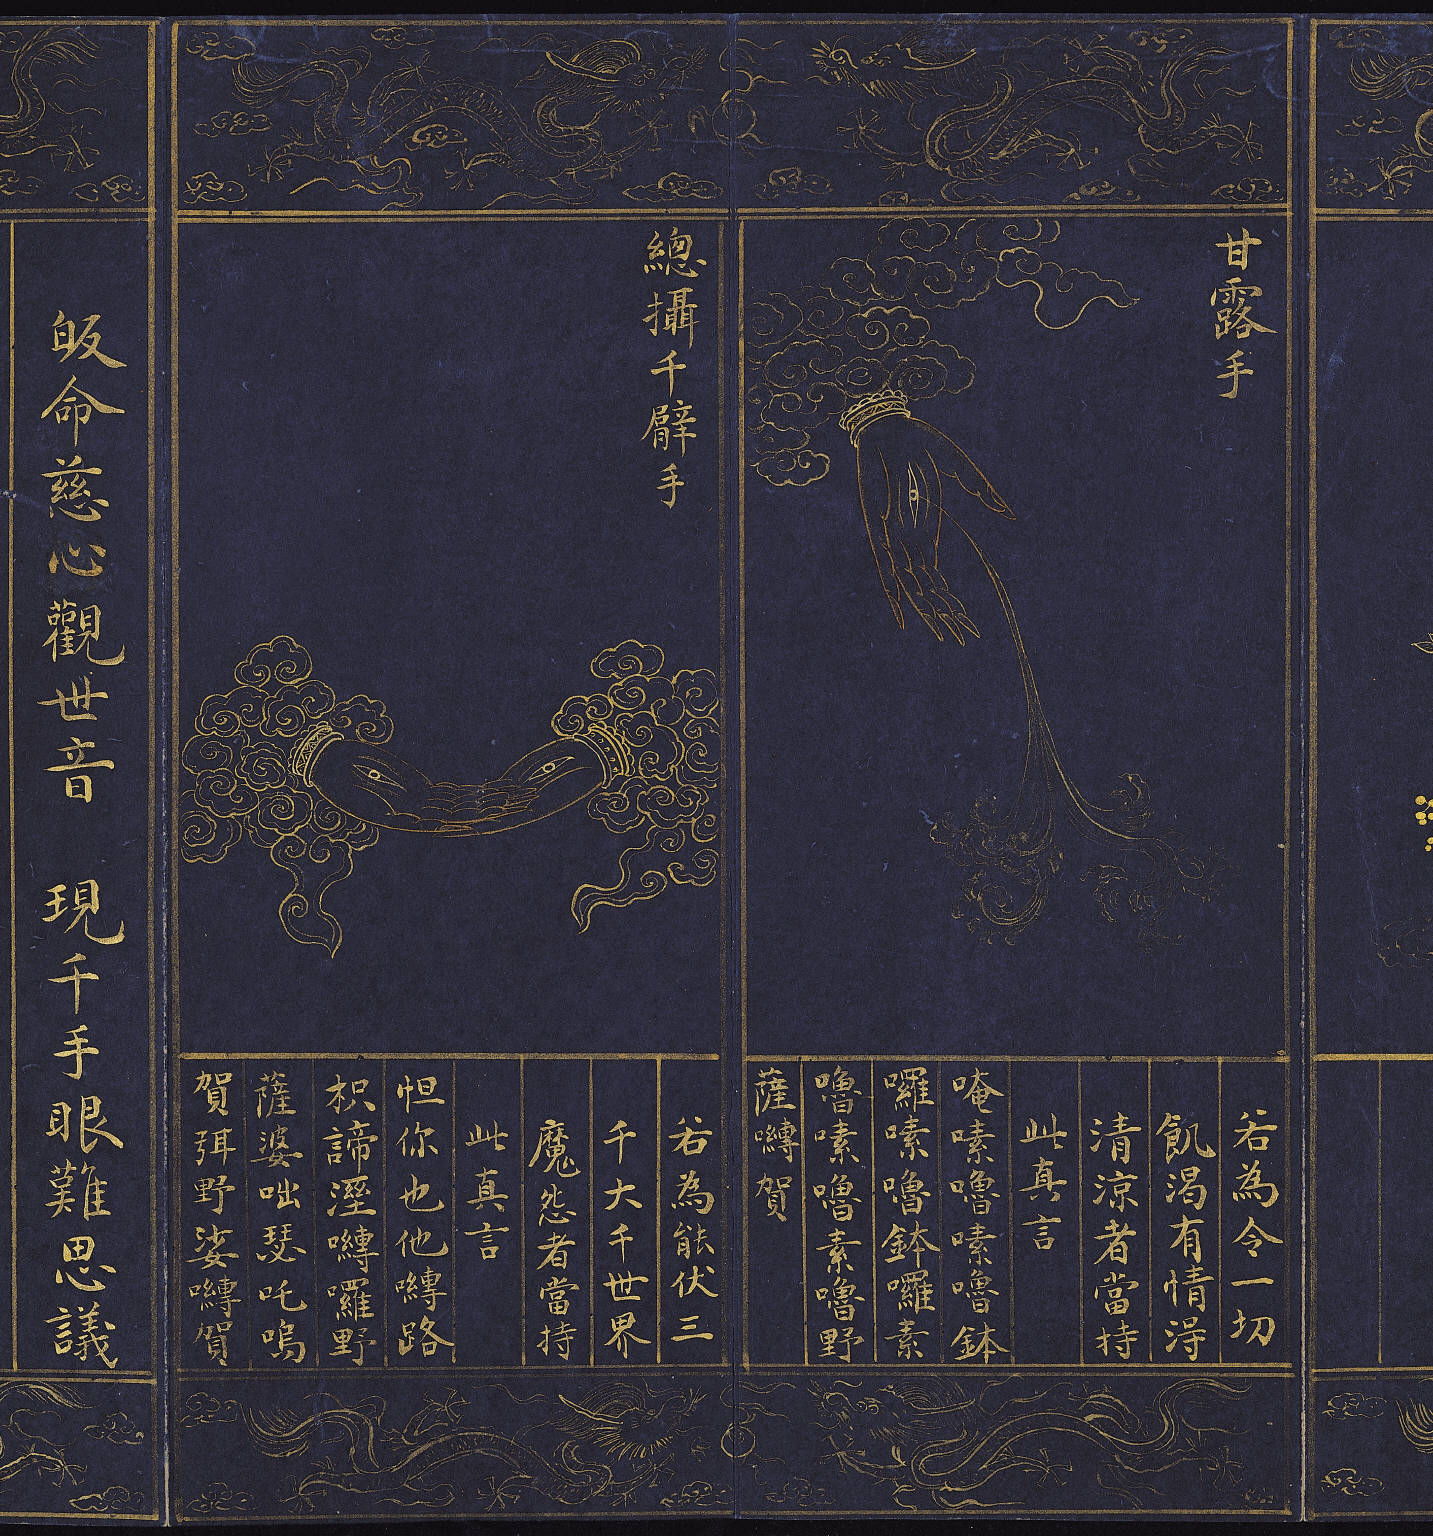 甘露手
若為令一切
飢渴有情淂
清涼者當持
此真言
唵嗉嚕嗉嚕鉢
囉嗉嚕鉢囉素
嚕嗉嚕素嚕野
薩嚩賀
緫攝千臂手
若為能伏三
千大千世界
魔怨者當持
此真言
怛你也他嚩路
枳諦溼嚩囉野
薩婆咄瑟吒嗚
賀弭野娑嚩賀
皈命慈心觀世音　現千手眼難思議